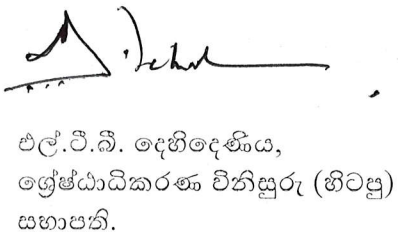 එල්.ටී.බී. දෙහිදෙණිය,
ශ්‍රේෂ්ඨාධිකරණ විනිසුරු (හිටපු)
සභාපති.